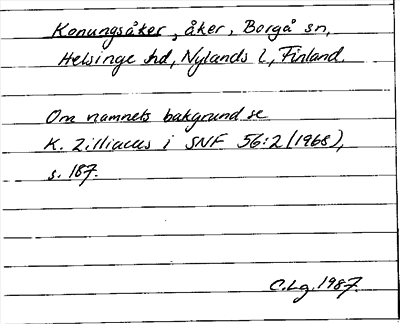 Konungsåker, åker, Borgå sn,
Helsinge hd, Nylands l, Finland.
Om namnets bakgrund se
K. Zilliacus i SNF 56:2 (1968),
s. 187.
C.Lg. 1987.